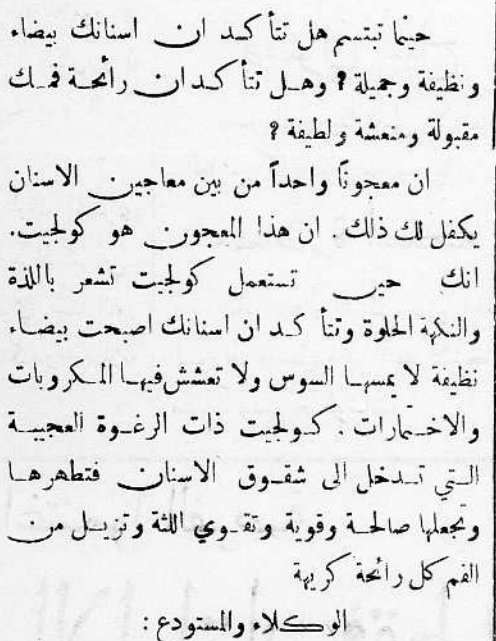 حينما تبتسم هل تتأكد ان اسنانك بيضاء
ونظيفة وجميلة ? وهل تتأكد ان رائحة فمك
مقبولة ومنعشة ولطيفة ?
ان معجونًا واحداً من بين معاجين الاسنان
يكفل لك ذلك . ان هذا المعجون هو كولجيت.
انك حين تستعمل كولجيت تشعر باللذة
والنكهة الحلوة وتتأكد ان اسنانك اصبحت بيضاء
نظيفة لا يمسها السوس ولا تعشش فيها المكروبات
والاختمارات . كولجيت ذات الرغوة العجيبة
التي تدخل الى شقوق الاسنان فتطهرها
وتجعلها صالحة وقوية وتقوي اللثة وتزيل من
الفم كل رائحة كريهة
الوكلاء والمستودع :